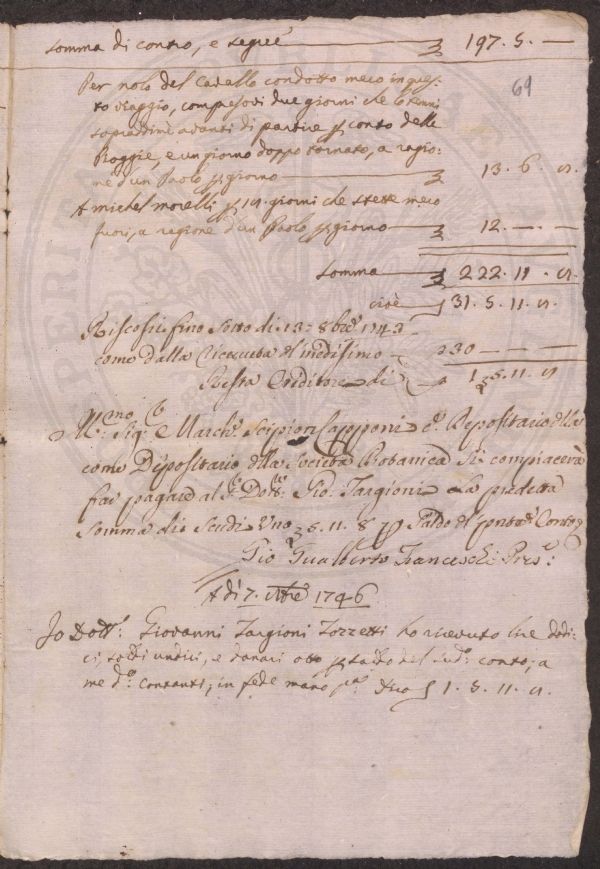 somma di contro, e segue £ 197. 5. —
69
Per nolo del Cavallo condotto meco in ques:
to viaggio, compresovi due giorni che lo tenni
avanti di partire p conto delle
Piogge, e un giorno doppo tornato, a ragio:
ne d'un Paolo p giorno £ 13. 6. 8.
A Michel Morelli p 18 giorni che stette meco
fuori, a ragione d'un Paolo p giorno £ 12. — . —
Somma £ 222. 11. 8.
cioè 31. 5. 11. 8.
Riscossi fino sotto dì 13: 8bre 1743
come dalla Ricevuta 30 — — —
Resta Creditore di 1. 5. 11. 8
Sig: March: Scipion Capponi Depositario
come Depositario della Società Botanica si compiacerà
far pagare al Sr. Dotte. Gio. Targioni la predetta
somma di Scudi Uno 5. 11. 8 p Saldo Conto
Gio: Gualberto Franceschi Pres:
A dì 7. 1746
Io Dottr. Giovanni Targioni Tozzetti ho ricevuto lire dodi:
ci, soldi undici, e denari otto p saldo del sudo. conto; a
me do. contanti; in fede mano pa. 1. 5. 11. 8.